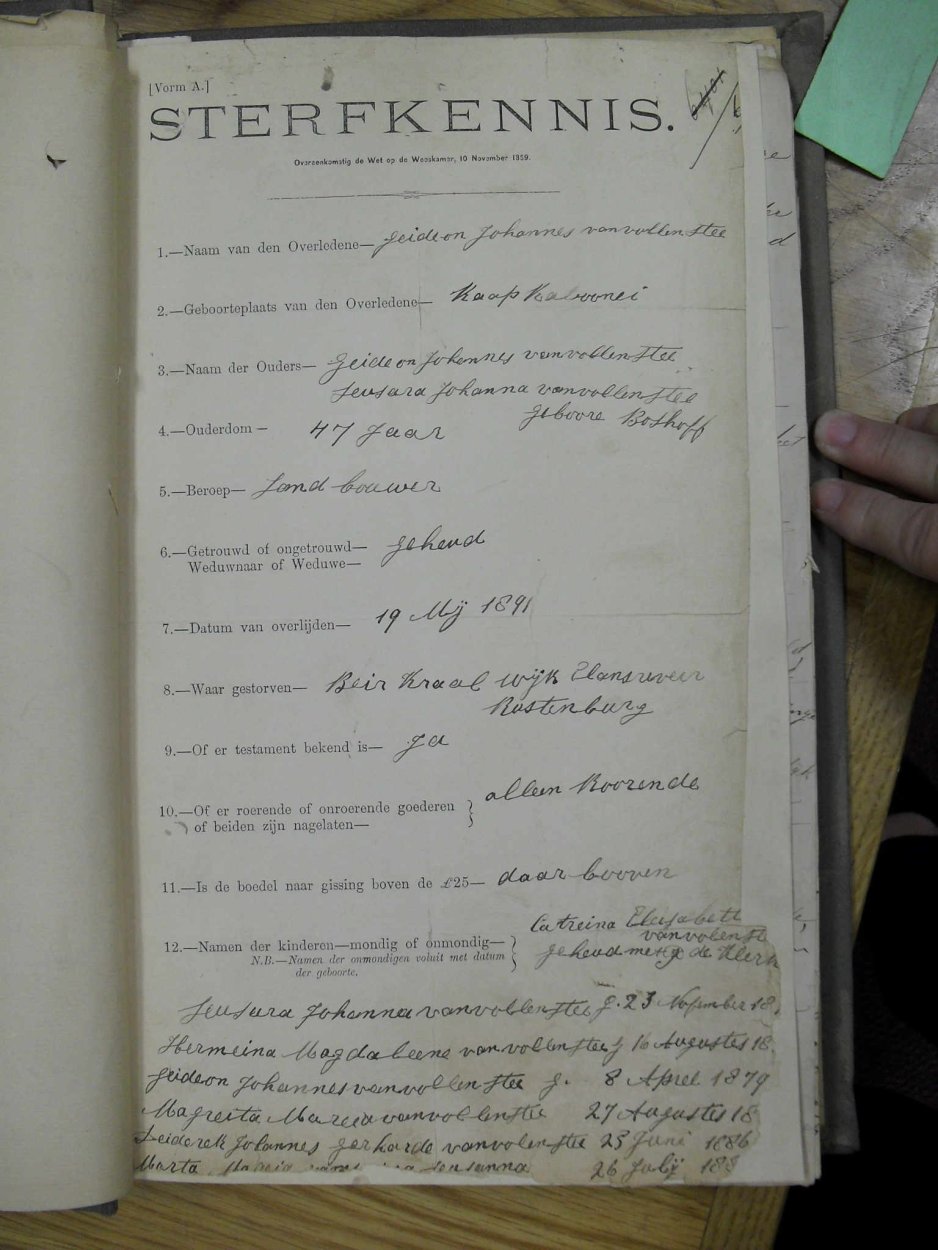 [Vorm A.]
STERFKENNIS.
Overeenkomstig de Wet op de Weeskamer, 10 November 1859.
1.—Naam van den Overledene— Geideon Johannes vanvollenstee
2.—Geboorteplaats van den Overledene— Kaap Kaloonei
3.—Naam der Ouders— Geideon Johannes vanvollenstee
Seusara Johanna vanvollenstee
geboore Boshoff
4.—Ouderdom— 47 Jaar
5.—Beroep— Landbouwer
6.—Getrouwd of ongetrouwd—
Weduwnaar of Weduwe— geheud
7.—Datum van overlijden— 19 Mij 1891
8.—Waar gestorven— Beir Kraal wijk Elansreveer
Rostenburg
9.—Of er testament bekend is— Ja
10.—Of er roerende of onroerende goederen
of beiden zijn nagelaten— alleen Roorende
11.—Is de boedel naar gissing boven de £25— daar booven
12.—Namen der kinderen—mondig of onmondig—
N.B.—Namen der onmondigen voluit met datum
der geboorte.
Catreina Elisabett
vanvolenst
geheud met de Klerk
Seusara Johanna vanvollenstee g. 23 November 18
Hermeina Magdaleene vanvollenstee g 16 Augustes 18
Geideon Johannes vanvollenstee g. 8 Apreel 1879
Magreita Mareia vanvollenstee 27 Augustes 18
Deiderek Johannes gerharde vanvolenstee 23 Juni 1886
Marta 26 Julij 188